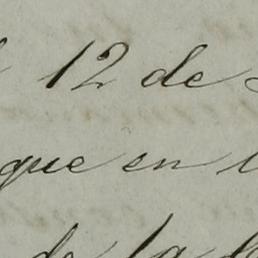 12 de
que en
de la